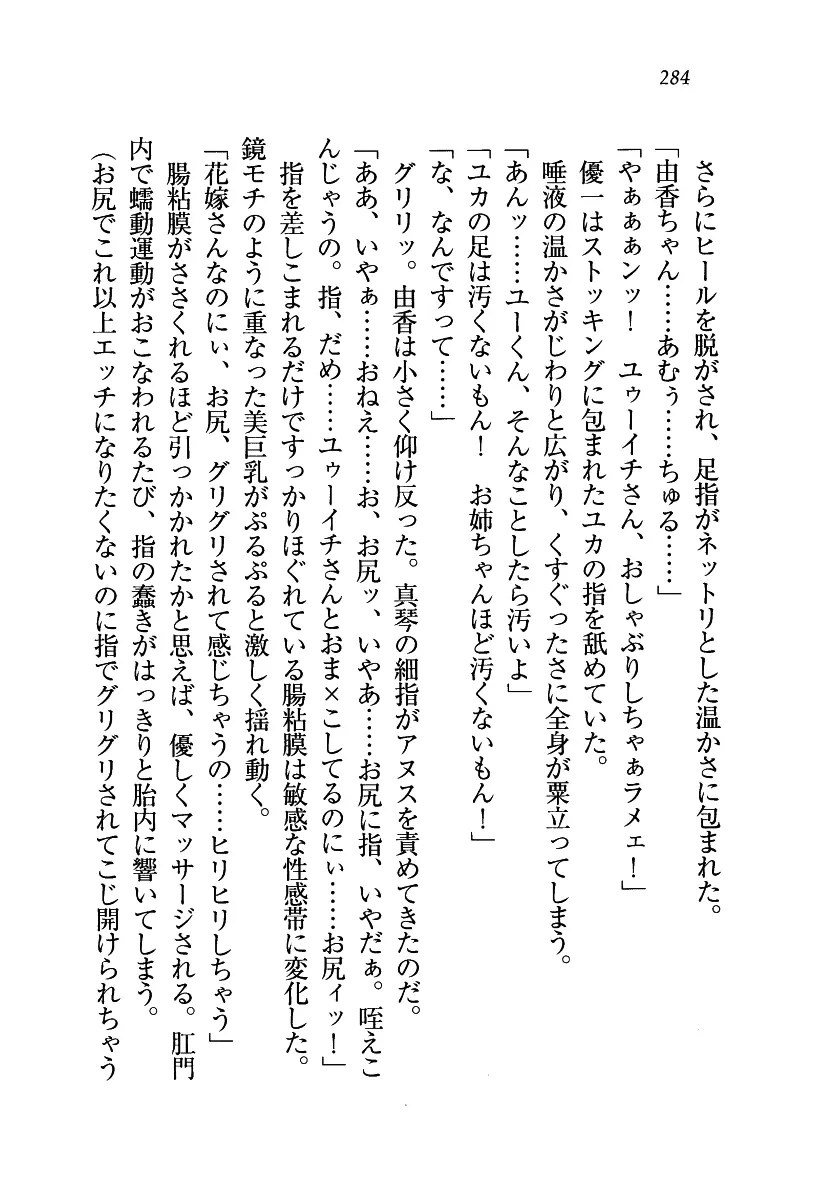 284
さらにヒールを脱がされ、足指がネットリとした温かさに包まれた。
「由香ちゃん……あむぅ……ちゅる……」
「やぁぁぁンッ！　ユゥーイチさん、おしゃぶりしちゃぁラメェ！」
優一はストッキングに包まれたユカの指を舐めていた。
唾液の温かさがじわりと広がり、くすぐったさに全身が粟立ってしまう。
「あんッ……ユーくん、そんなことしたら汚いよ」
「ユカの足は汚くないもん！　お姉ちゃんほど汚くないもん！」
「な、なんですって……」
グリリッ。由香は小さく仰け反った。真琴の細指がアヌスを責めてきたのだ。
「ああ、いやぁ……おねえ……お、お尻ッ、いやあ……お尻に指、いやだぁ。咥えこ
んじゃうの。指、だめ……ユゥーイチさんとおま×こしてるのにぃ……お尻ィッ！」
指を差しこまれるだけですっかりほぐれている腸粘膜は敏感な性感帯に変化した。
鏡モチのように重なった美巨乳がぷるぷると激しく揺れ動く。
「花嫁さんなのにぃ、お尻、グリグリされて感じちゃうの……ヒリヒリしちゃう」
腸粘膜がささくれるほど引っかかれたかと思えば、優しくマッサージされる。肛門
内で蠕動運動がおこなわれるたび、指の蠢きがはっきりと胎内に響いてしまう。
（お尻でこれ以上エッチになりたくないのに指でグリグリされてこじ開けられちゃう